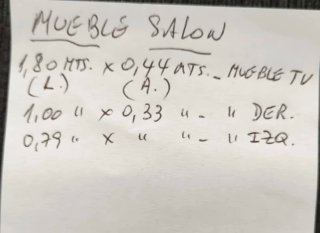 MUEBLE SALON
1,80 MTS. x 0,44 MTS. - MUEBLE TV
(L.) (A.)
1,00 " x 0,33 " - " DER.
0,79 " x " " - " IZQ.